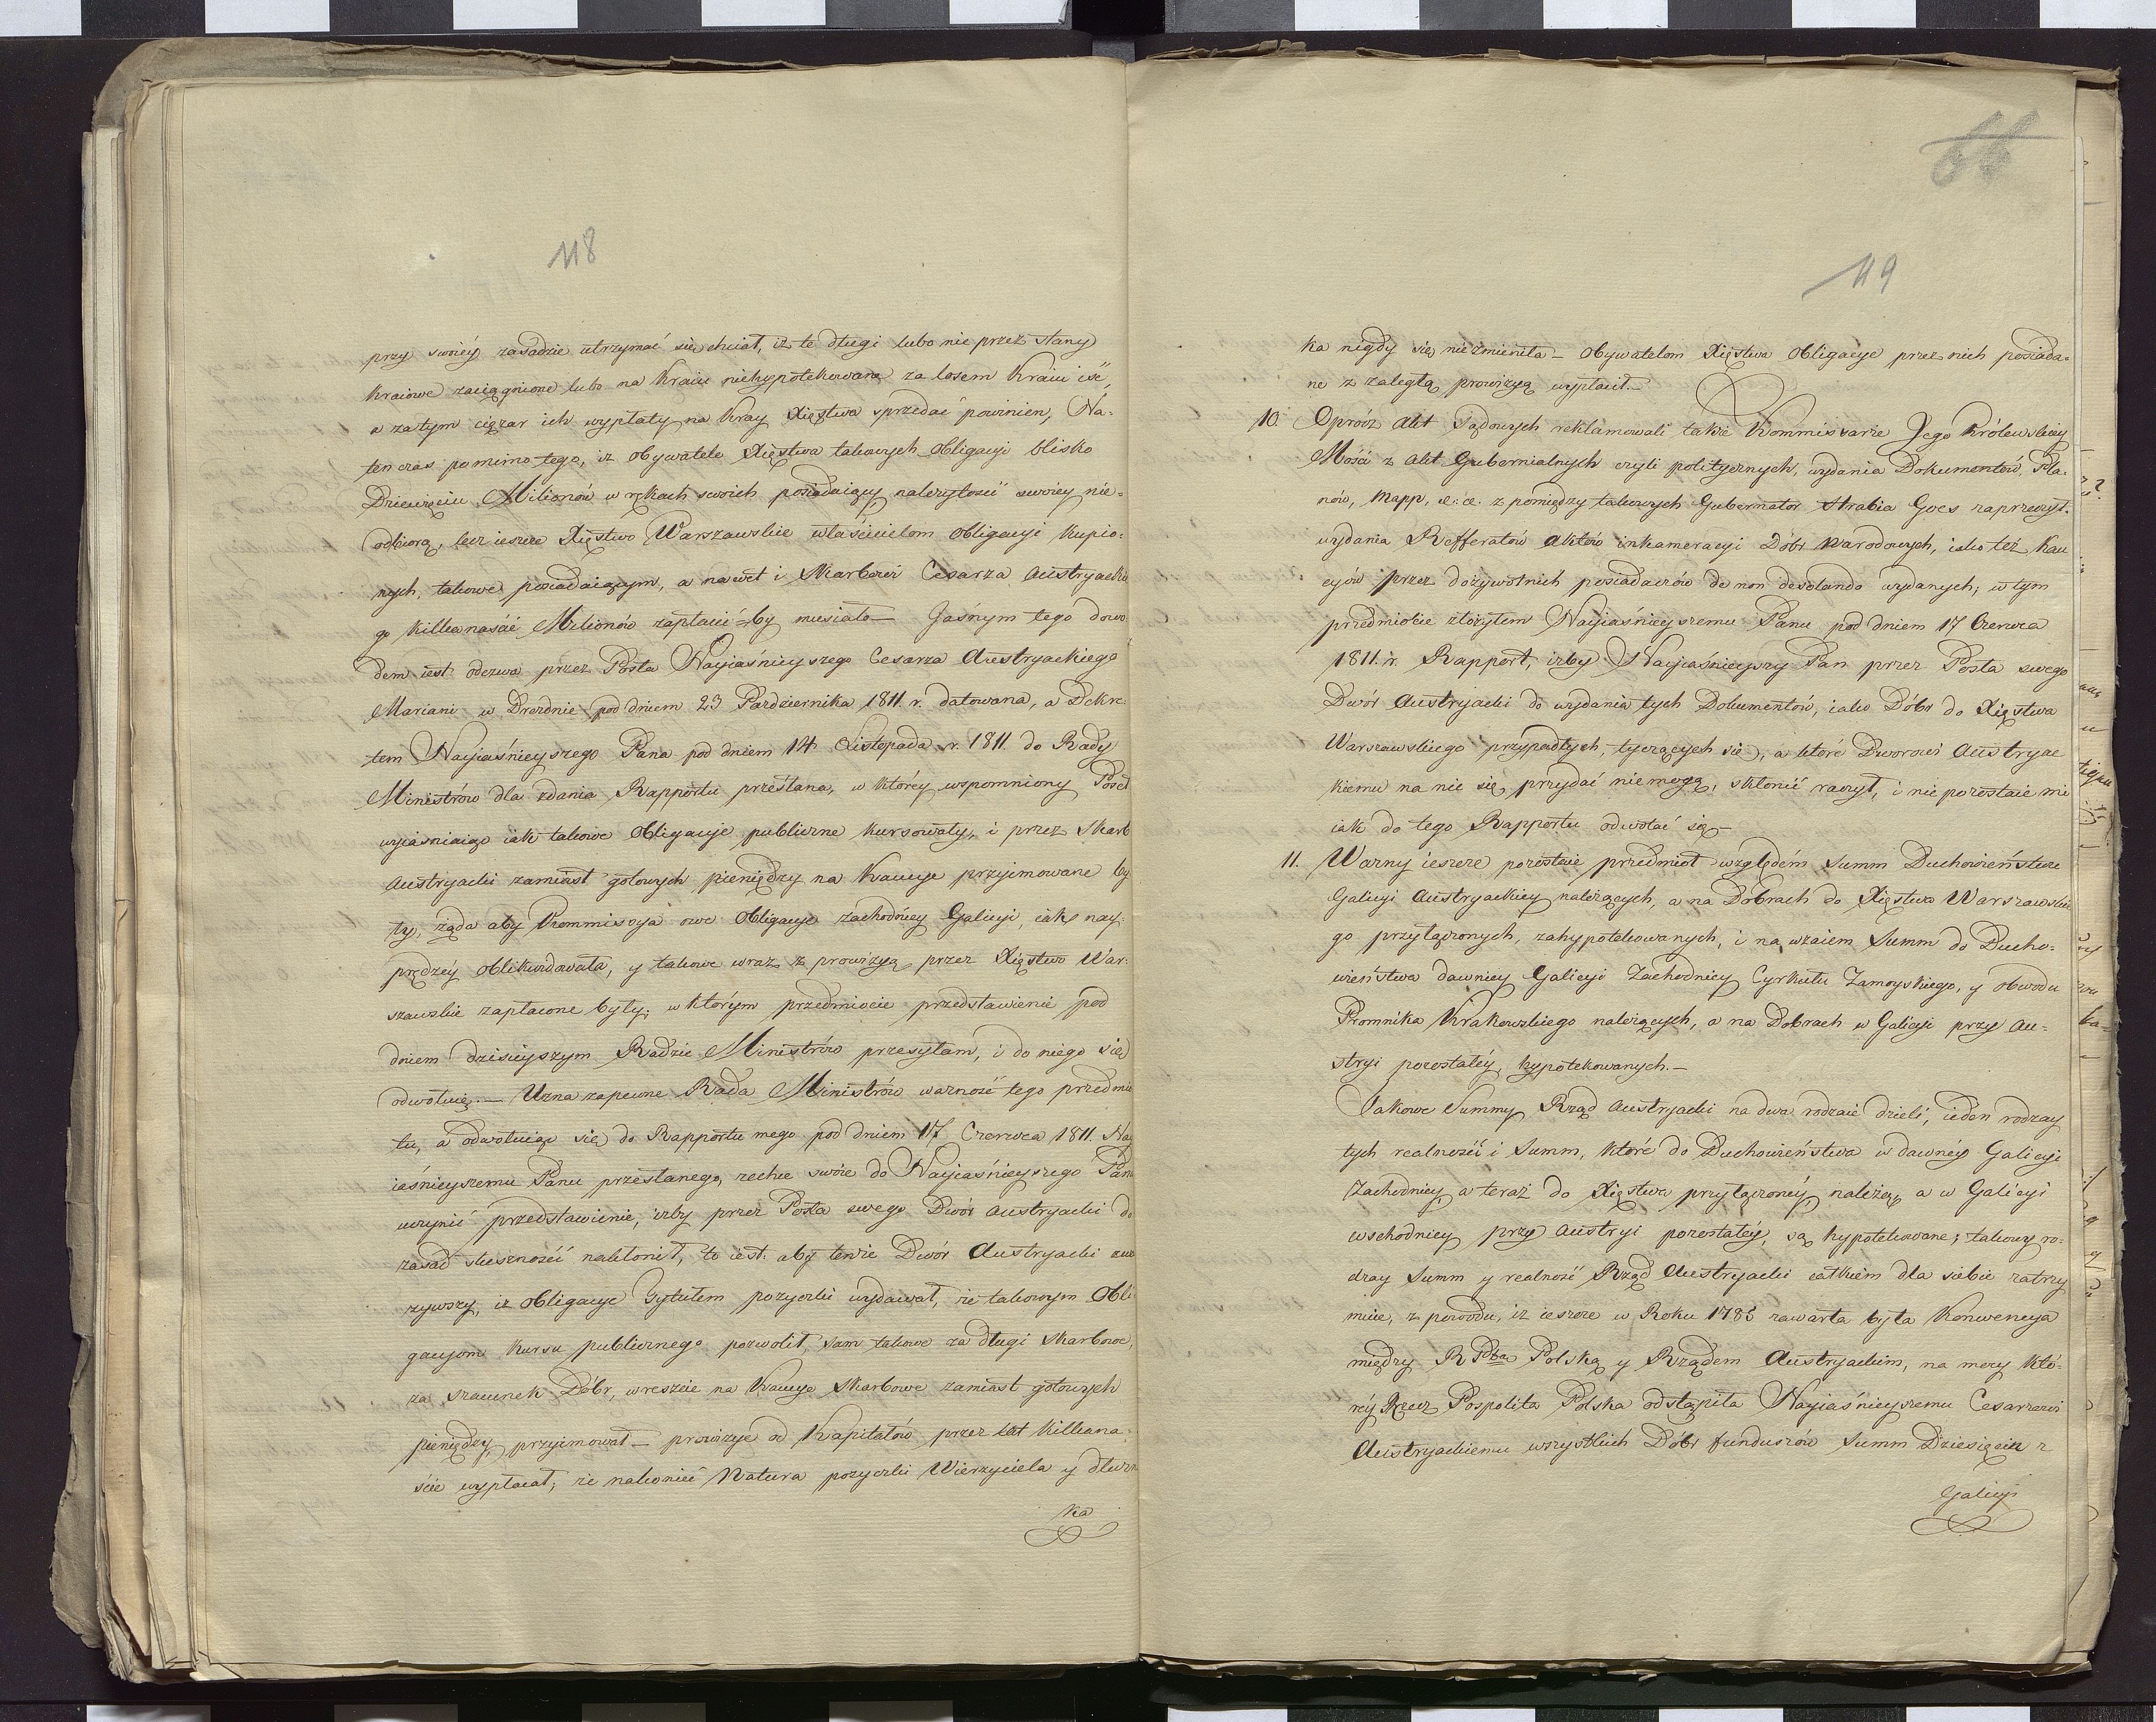 118
przy swoiéy zasadzie utrzymać się chciał, iż te długi lubo nie przez stany
Kraiowe zaciągnione lubo na Kraiu niehypotekowane za losem Kraiu iść,
a zatym ciężar ich wypłaty na Kray Xięstwa sprzedać powinien, Na-
ten czas pomimo tego, iż Obywatele Xięstwa takowych Obligacyi blisko
Dziewięciu Milionów w rękach swoich posiadaiący należytości swoiey nie-
odbiorą, lecz ieszcze Xięstwo Warszawskie właścicielom Obligacyi Kupio-
nych, takowe posiadaiącym, a nawet i Skarbowi Cesarza Austryackie
go Killkanaście Milionów zapłacić=by musiało — Jaśnym tego dowo
dem iest odezwa przez Posła Nayiaśnieyszego Cesarza Austryackiego
Mariani w Dreznie pod dniem 23 Pazdziernika 1811 r. datowana, a Dekre-
tem Nayiaśnieyszego Pana pod dniem 14 Listopada r. 1811. do Rady
Ministrów dla zdania Rapportu przesłana, w którey wspomniony Poseł
wyiaśniaiąc iak takowe Obligacyje publiczne kursowały, i przez Skarb
Austryacki zamiast gotowych pieniędzy na Kaucye przyimowane by
ły, żąda aby Kommissyja owe Obligacye zachodniey Galicyi, iak nay-
prędzéy oblikwidowała, y takowe wraz z prowizyą przez Xięstwo War-
szawskie zapłacone były; w którym przedmiocie przedstawienie pod
dniem dzisieyszym Radzie Ministrów przesyłam, i do niego się
odwołuię. — Uzna zapewne Rada Ministrów ważność tego przedmio
tu, a odwołuiąc się do Rapportu mego pod dniem 17 Czerwca 1811. Nay
iaśnieyszemu Panu przesłanego, zechce swóie do Nayiaśnieyszego Pana
uczynić przedstawienie, iżby przez Posła swego Dwór Austryacki do
zasad słuszności nakłonił, to iest: aby tenże Dwór Austryacki zwa
żywszy, iż Obligacye Tytułem pożyczki wydawał, że takowym Obli
gacyom Kursu publicznego pozwolił, sam takowe za długi Skarbowe,
za szacunek Dóbr, wreszcie na Kaucye Skarbowe zamiast gotowych
pieniędzy przyimował — prowizye od Kapitałów przez lat Killkana-
ście wypłacał, że nakoniec Natura pożyczki Wierzyciela y dłużni
ka
66
119
ka nigdy się niezmieniła — Obywatelom Xięstwa Obligacye przez nich posiada-
ne z zaległą prowizyą wypłacił. —
10. Oprócz Akt Sądowych reklamowali także Kommissarze Jego Królewskiey
Mości z Akt Gubernialnych czyli politycznych, wydania Dokumentów, Pla-
nów, Mapp, &: &. z pomiędzy takowych Gubernator Hrabia Goes zaprzeczył.
wydania Refferatów Aktów inkameracyi Dóbr Narodowych, iako też Kau
cyów przez dożywotnich posiadaczów de non desolando wydanych; w tym
przedmiocie złożyłem Nayiaśnieyszemu Panu pod dniem 17 Czerwca
1811. r. Rapport, iżby Nayiaśnieyszy Pan przez Posła swego
Dwór Austryacki do wydania tych Dokumentów, iako Dóbr do Xięstwa
Warszawskiego przypadłych, tyczących się, a które Dworowi Austryac
kiemu na nic się przydać niemogą, skłonić raczył, i nie pozostaie mi
iak do tego Rapportu odwołać się —
11. Ważny ieszcze pozostaie przedmiot względem Summ Duchowieństwu
Galicyi Austryackiey należących, a na Dobrach do Xięstwa Warszawskie
go przyłączonych, zahypotekowanych, i na wzaiem Summ do Ducho-
wieństwa dawniey Galicyi Zachodniey Cyrkułu Zamoyskiego, y obwodu
Promnika Krakowskiego należących, a na Dobrach w Galicyi przy Au-
stryi pozostałéy, hypotekowanych. —
Takowe Summy Rząd Austryacki na dwa rodzaie dzieli, ieden rodzay
tych realności i Summ, które do Duchowieństwa w dawnéy Galicyi
Zachodniey, a teraz do Xięstwa przyłączonéy należą, a w Galicyi
wschodniey przy Austryi pozostałéy, są hypotekowane; takowy ro-
dzay Summ y realność Rząd Austryacki całkiem dla siebie zatrzy
muie, z powodu, iż ieszcze w Roku 1785 zawarta była Konwencya
między RPbą Polską y Rządem Austryackim, na mocy któ-
réy Rzecz Pospolita Polska odstąpiła Nayiaśnieyszemu Cesarzowi
Austryackiemu wszystkich Dóbr funduszów Summ Dziesięcin z
Galicyi